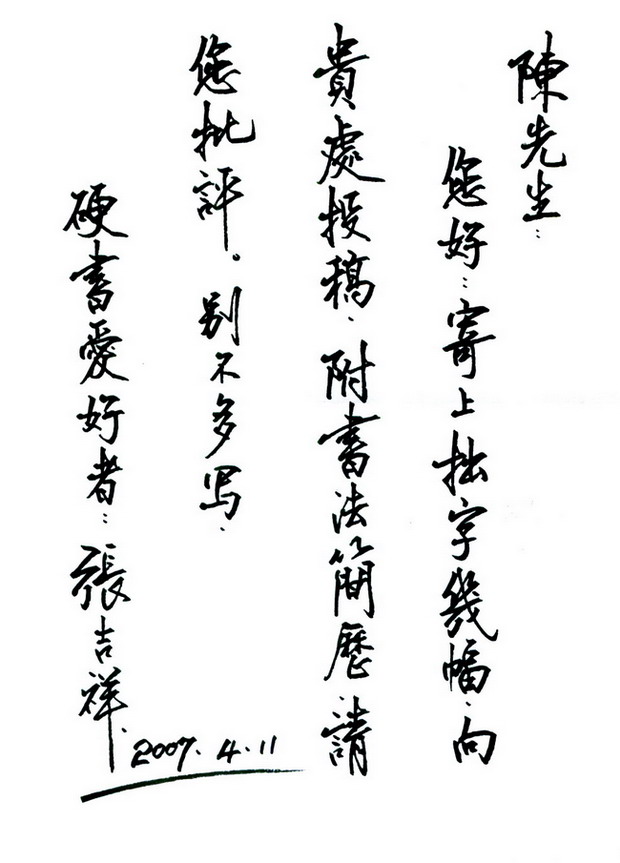 陳先生：
您好：寄上拙字幾幅．向
貴處投稿．附書法簡歷．請
您批評。别不多写．
硬書愛好者：張吉祥．
2007.4.11